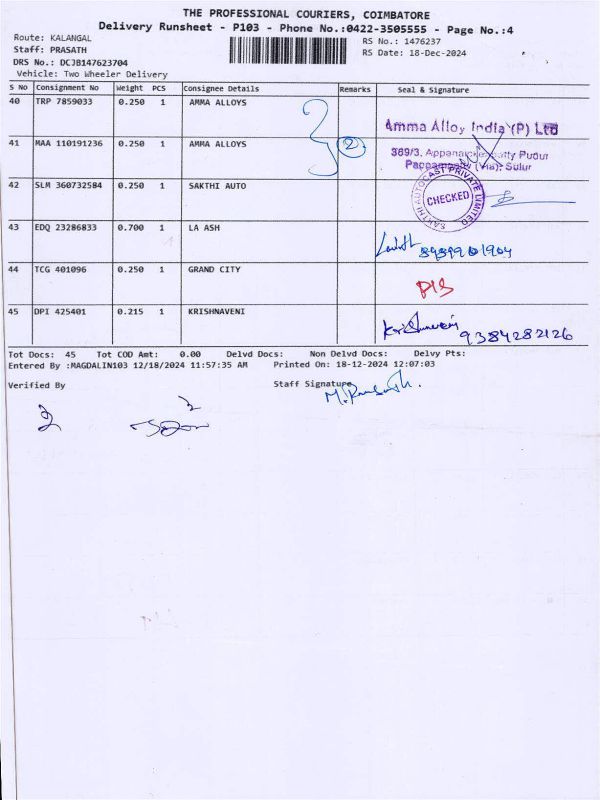 THE PROFESSIONAL COURIERS, COIMBATORE
Delivery Runsheet - P103 - Phone No.:0422-3505555 - Page No.:4
Route: KALANGAL
RS No.: 1476237
Staff: PRASATH
RS Date: 18-Dec-2024
DRS No.: DCJB147623704
Vehicle: Two Wheeler Delivery
S No Consignment No Weight PCS Consignee Details Remarks Seal & Signature
40 TRP 7859033 0.250 1 AMMA ALLOYS
Amma Alloy India (P) Ltd
41 MAA 110191236 0.250 1 AMMA ALLOYS 2
Sulur
42 SLM 360732584 0.250 1 SAKTHI AUTO
SAKTHI AUTOCAST PRIVATE LIMITED
CHECKED
43 EDQ 23286833 0.700 1 LA ASH
44 TCG 401096 0.250 1 GRAND CITY
45 DPI 425401 0.215 1 KRISHNAVENI
Krishnaveni 9384282126
Tot Docs: 45 Tot COD Amt: 0.00 Delvd Docs: Non Delvd Docs: Delvy Pts:
Entered By :MAGDALIN103 12/18/2024 11:57:35 AM Printed On: 18-12-2024 12:07:03
Verified By Staff Signature